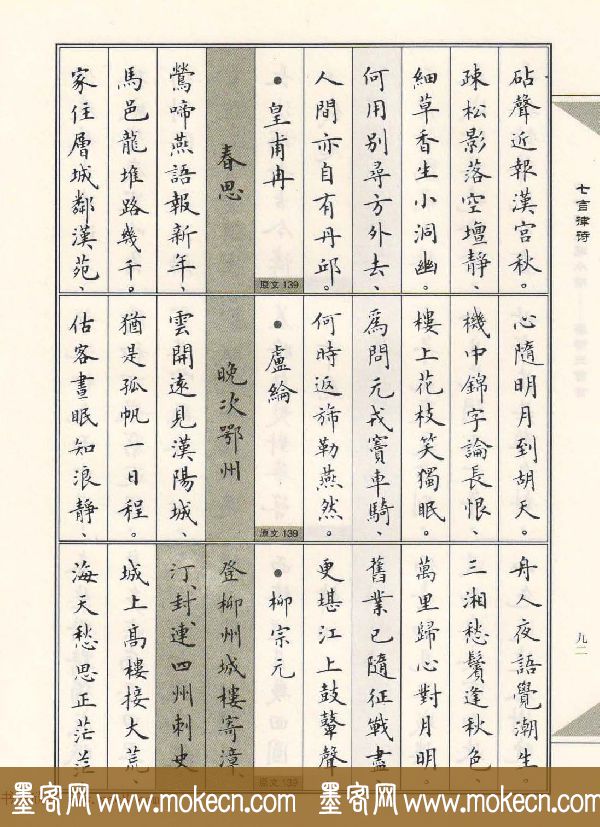 七言律诗
砧聲近報漢宮秋。
疎松影落空壇靜、
細草香生小洞幽。
何用別尋方外去、
人間亦自有丹邱。
•皇甫冉
原文139
春思
鶯啼燕語報新年、
馬邑龍堆路幾千。
家住層城鄰漢苑、
心隨明月到胡天。
機中錦字論長恨、
樓上花枝笑獨眠。
爲問元戎竇車騎、
何時返旆勒燕然。
•盧綸
原文139
晚次鄂州
雲開遠見漢陽城、
猶是孤帆一日程。
估客晝眠知浪靜、
舟人夜語覺潮生。
三湘愁鬢逢秋色、
萬里歸心對月明。
舊業已隨征戰盡、
更堪江上鼓鼙聲
•柳宗元
原文139
登柳州城樓寄漳、
汀、封、連四州刺史
城上高樓接大荒、
海天愁思正茫茫
九二
墨客网 www.mokecn.com 墨客网 www.mokecn.com